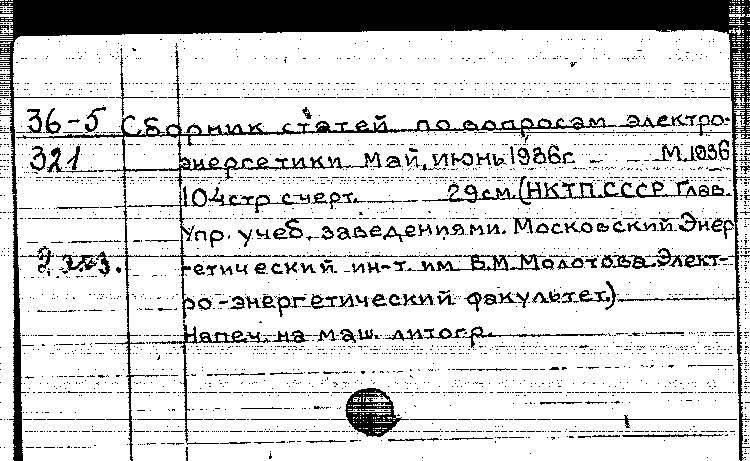 36-5 Сборник статей по вопросам электро-
321 энергетики Май, июнь 1936г. М. 1936
104стр с черт. 29см. (НКТП.СССР Глав.
Упр. учеб. заведениями. Московский Энер
2 экз. -гетический ин-т. им В.М.Молотова. Элект-
ро-энергетический факультет.)
Напеч. на маш. литогр.